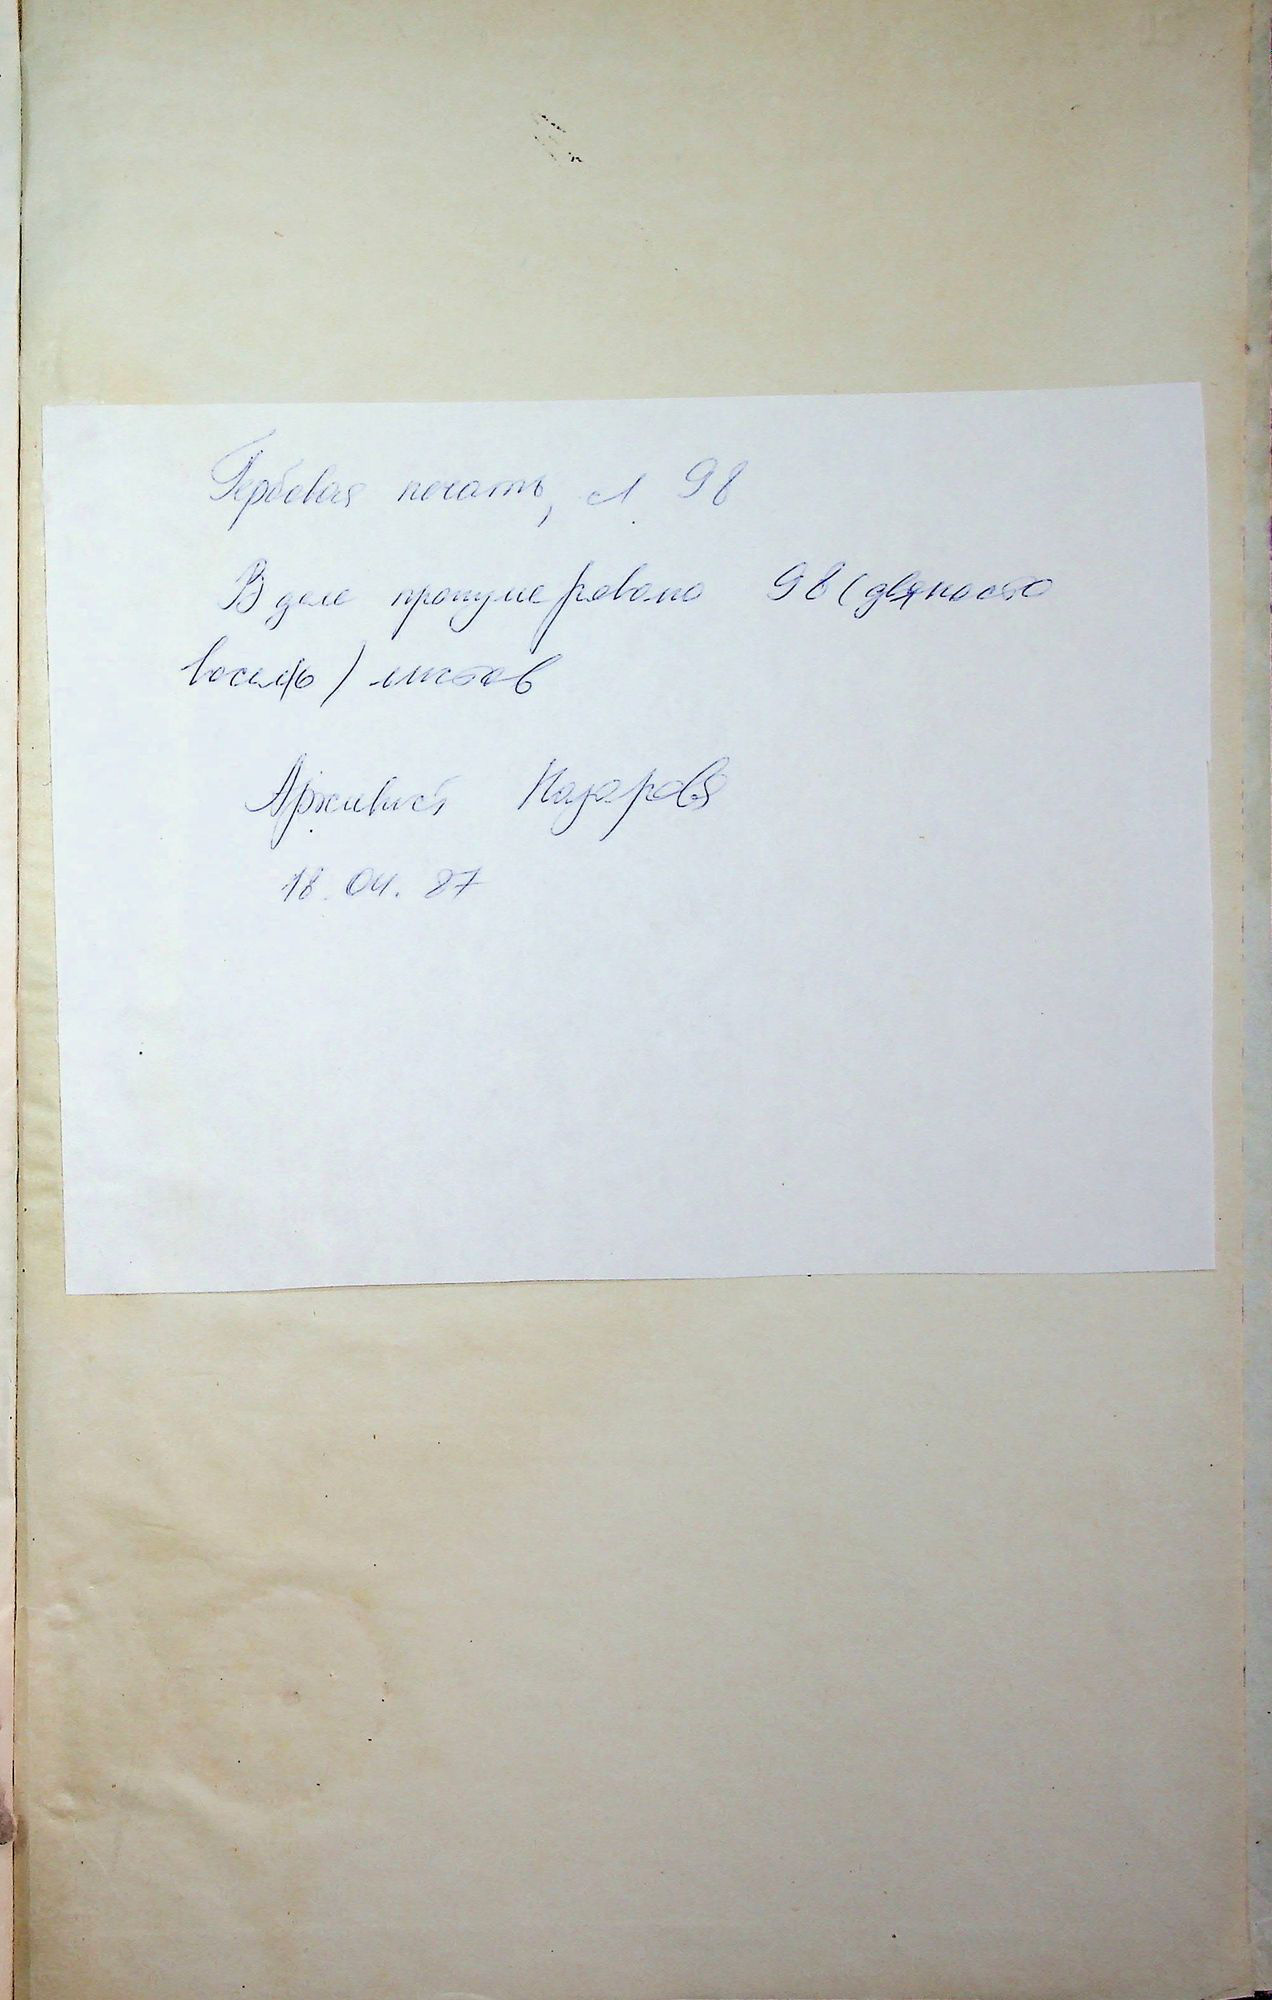 Гербовая печать, л. 98
В деле пронумеровано 98 (девяносто
восемь) листов
Архивист Назарова
18.04.87